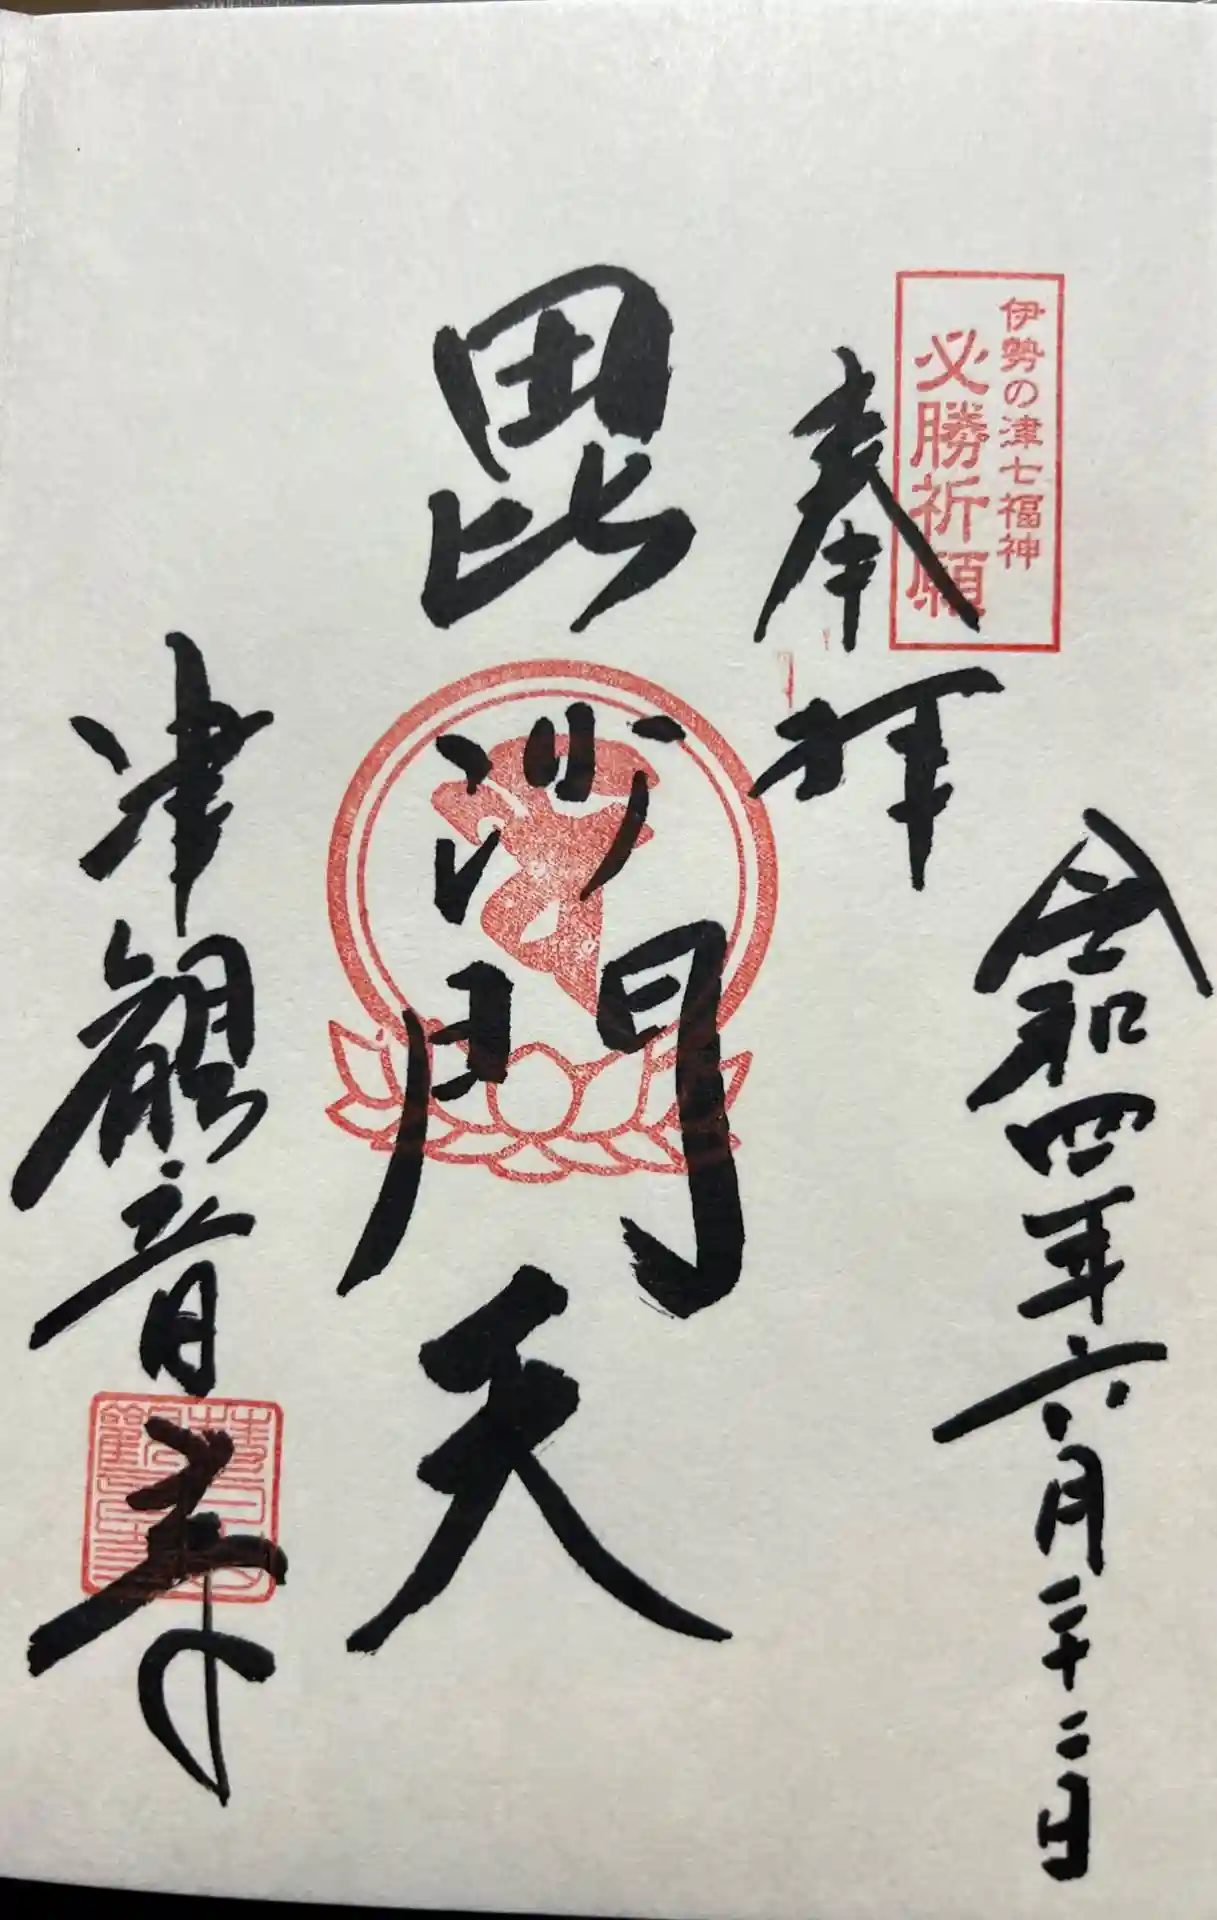 伊勢の津七福神
必勝祈願
令和四年六月二十二日
奉拝
毘沙門天
津観音寺